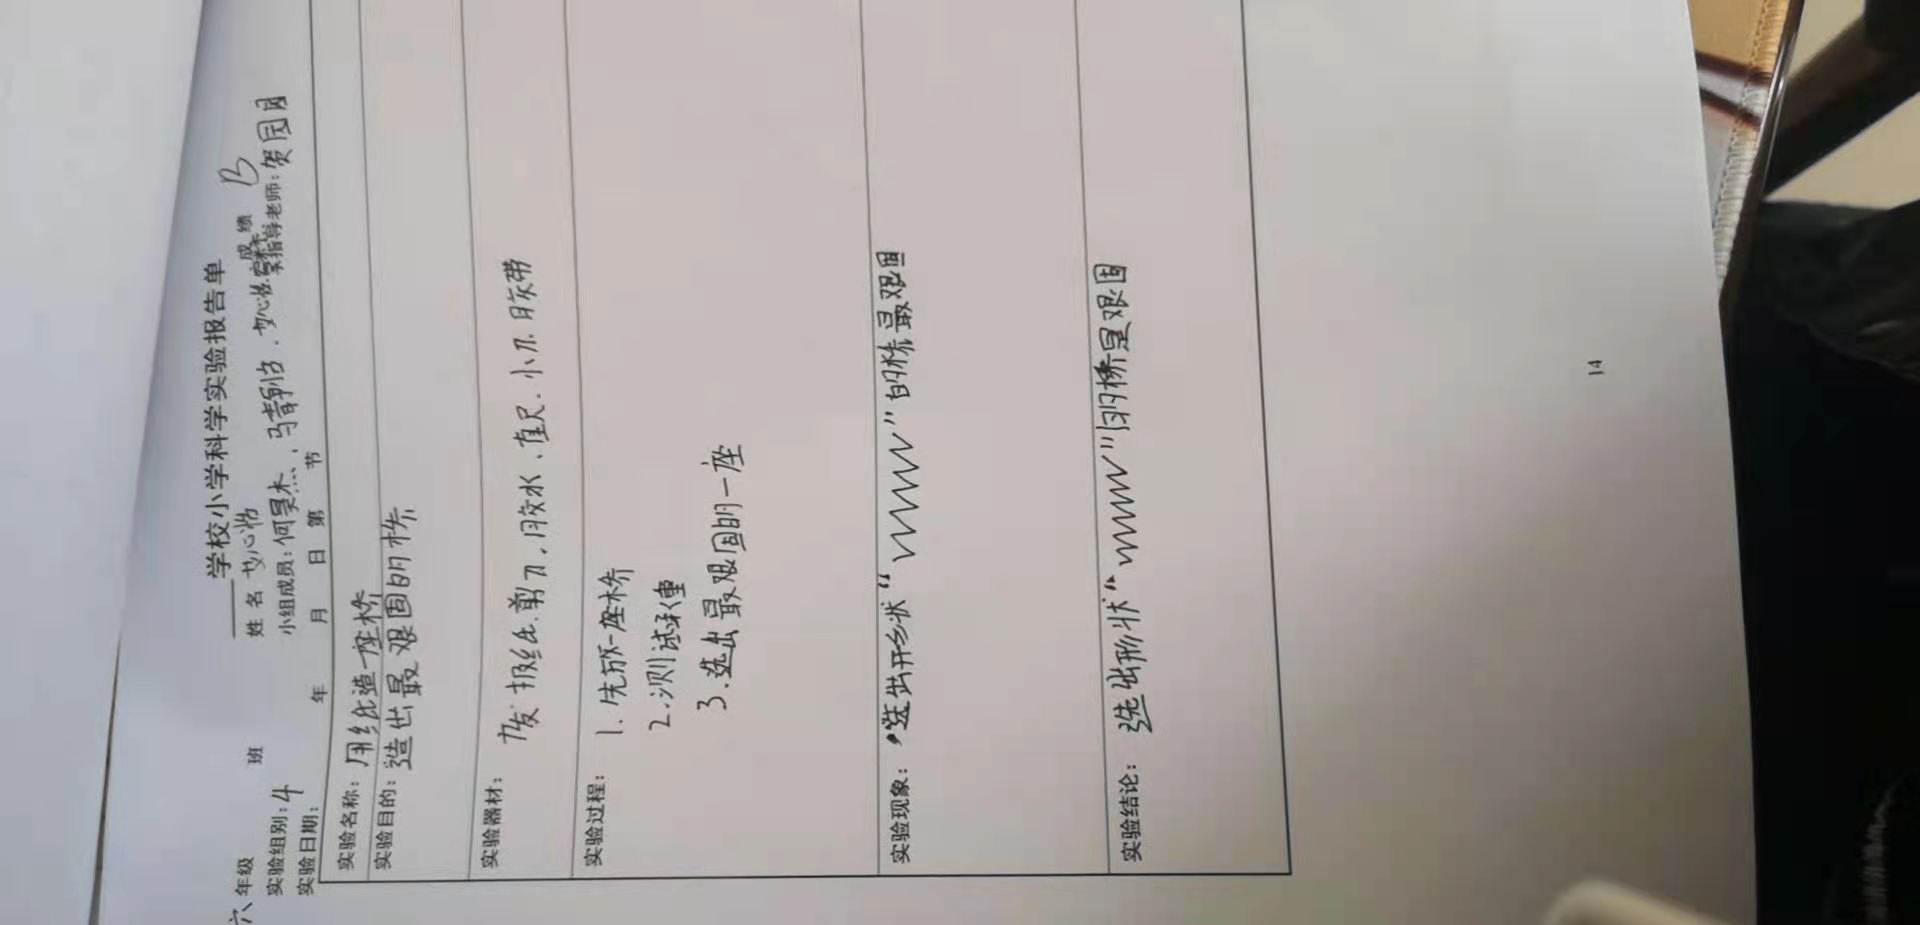 学校小学科学实验报告单
六年级 班 姓名 成绩 B
实验组别:4 小组成员:何昊杰、马静怡. 指导老师:贺园园
实验日期: 年 月 日 第 节
实验名称:用纸造一座桥
实验目的:造出最艰固的桥
实验器材:
废报纸.剪刀.胶水.直尺.小刀.胶带
实验过程:
1.先放一座桥
2.测试承重
3.选出最艰固的一座
实验现象:选出形状“VVVVV”的桥最艰固
实验结论:选出形状“VVVVV”的桥最艰固
14